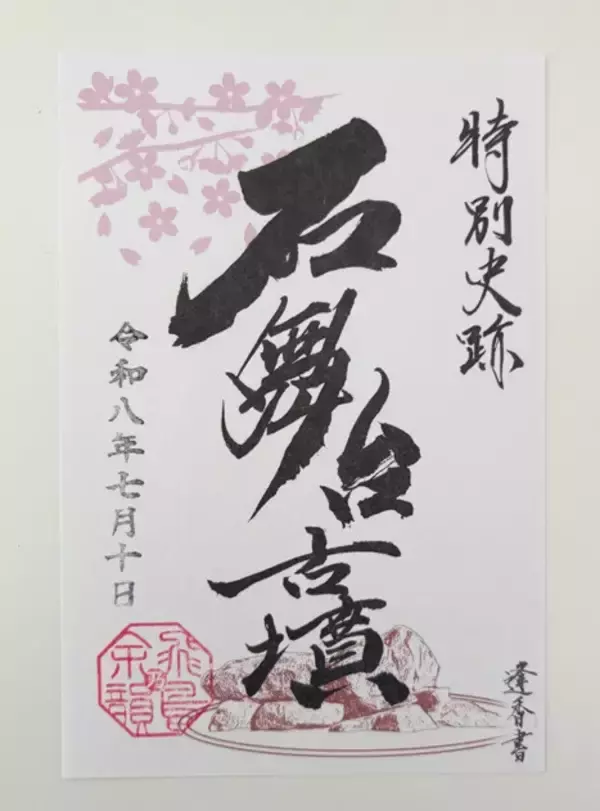 特別史跡
石舞台古墳
令和八年七月十日
飛鳥乃余韻
逢香書